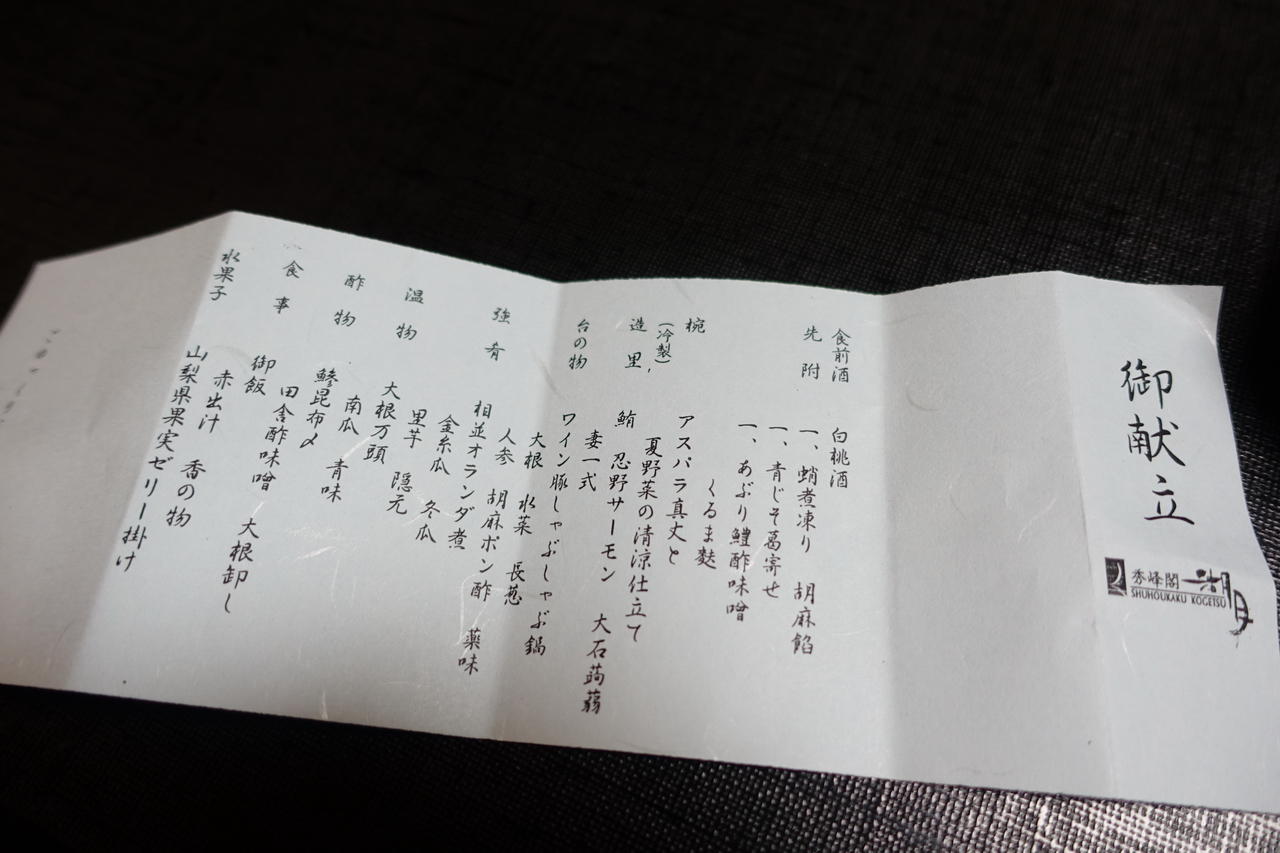 御献立
秀峰閣 湖月
SHUHOUKAKU KOGETSU
食前酒 白桃酒
先附 一、蛸煮凍り 胡麻餡
一、青じそ葛寄せ
一、あぶり鱧酢味噌
椀 くるま麩
(冷製) アスパラ真丈と
夏野菜の清涼仕立て
造里 鮪 忍野サーモン 大石蒟蒻
妻一式
台の物 ワイン豚しゃぶしゃぶ鍋
大根 水菜 長葱
人参 胡麻ポン酢 薬味
強肴 相並オランダ煮
金糸瓜 冬瓜
里芋 隠元
温物 大根万頭
南瓜 青味
酢物 鯵昆布〆
田舎酢味噌 大根卸し
食事 御飯
赤出汁 香の物
水果子 山梨県果実ゼリー掛け